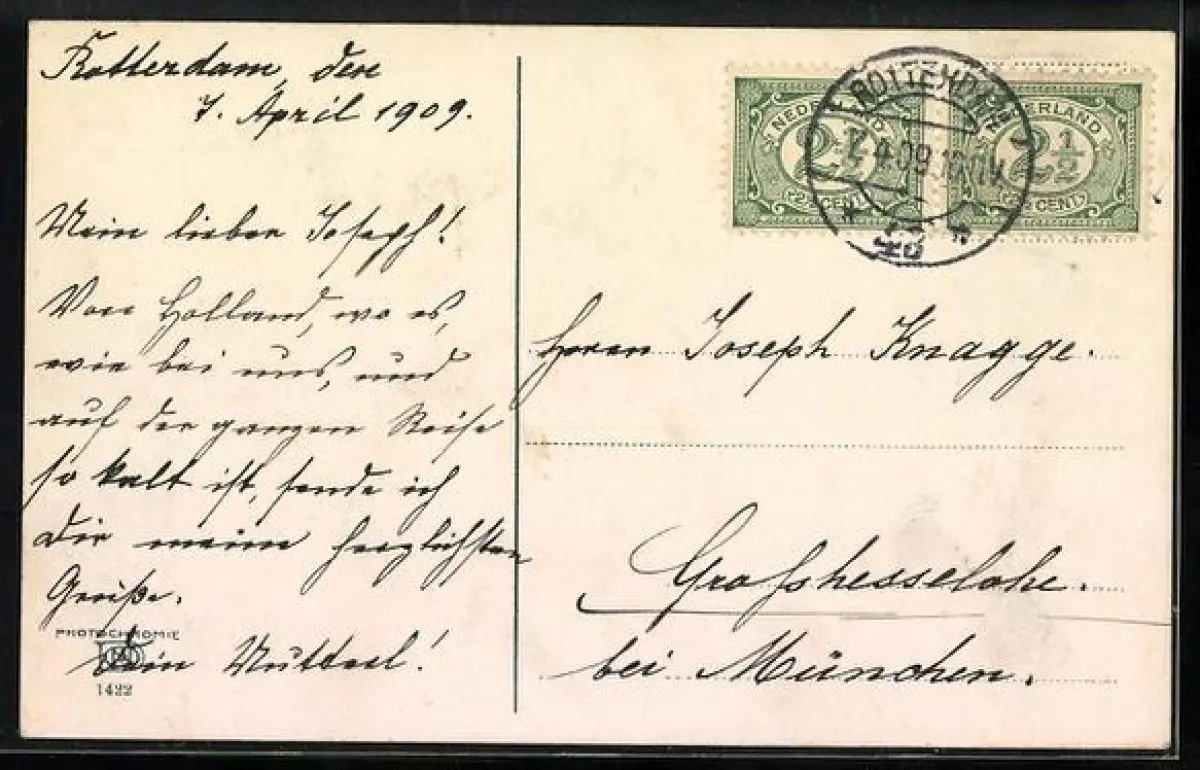 Rotterdam, den
7. April 1909.
Mein lieber Joseph!
Von Holland, wo es,
wie bei uns, und
auf der ganzen Reise
so kalt ist, sende ich
Dir meine herzlichsten
Grüße.
Dein
PHOTOCHROMIE
1422
NEDERLAND
2½
2½ CENT
NEDERLAND
2½
2½ CENT
ROTTERDAM
7.4.09.
Herrn Joseph Knagge.
Großhesselohe.
bei München.